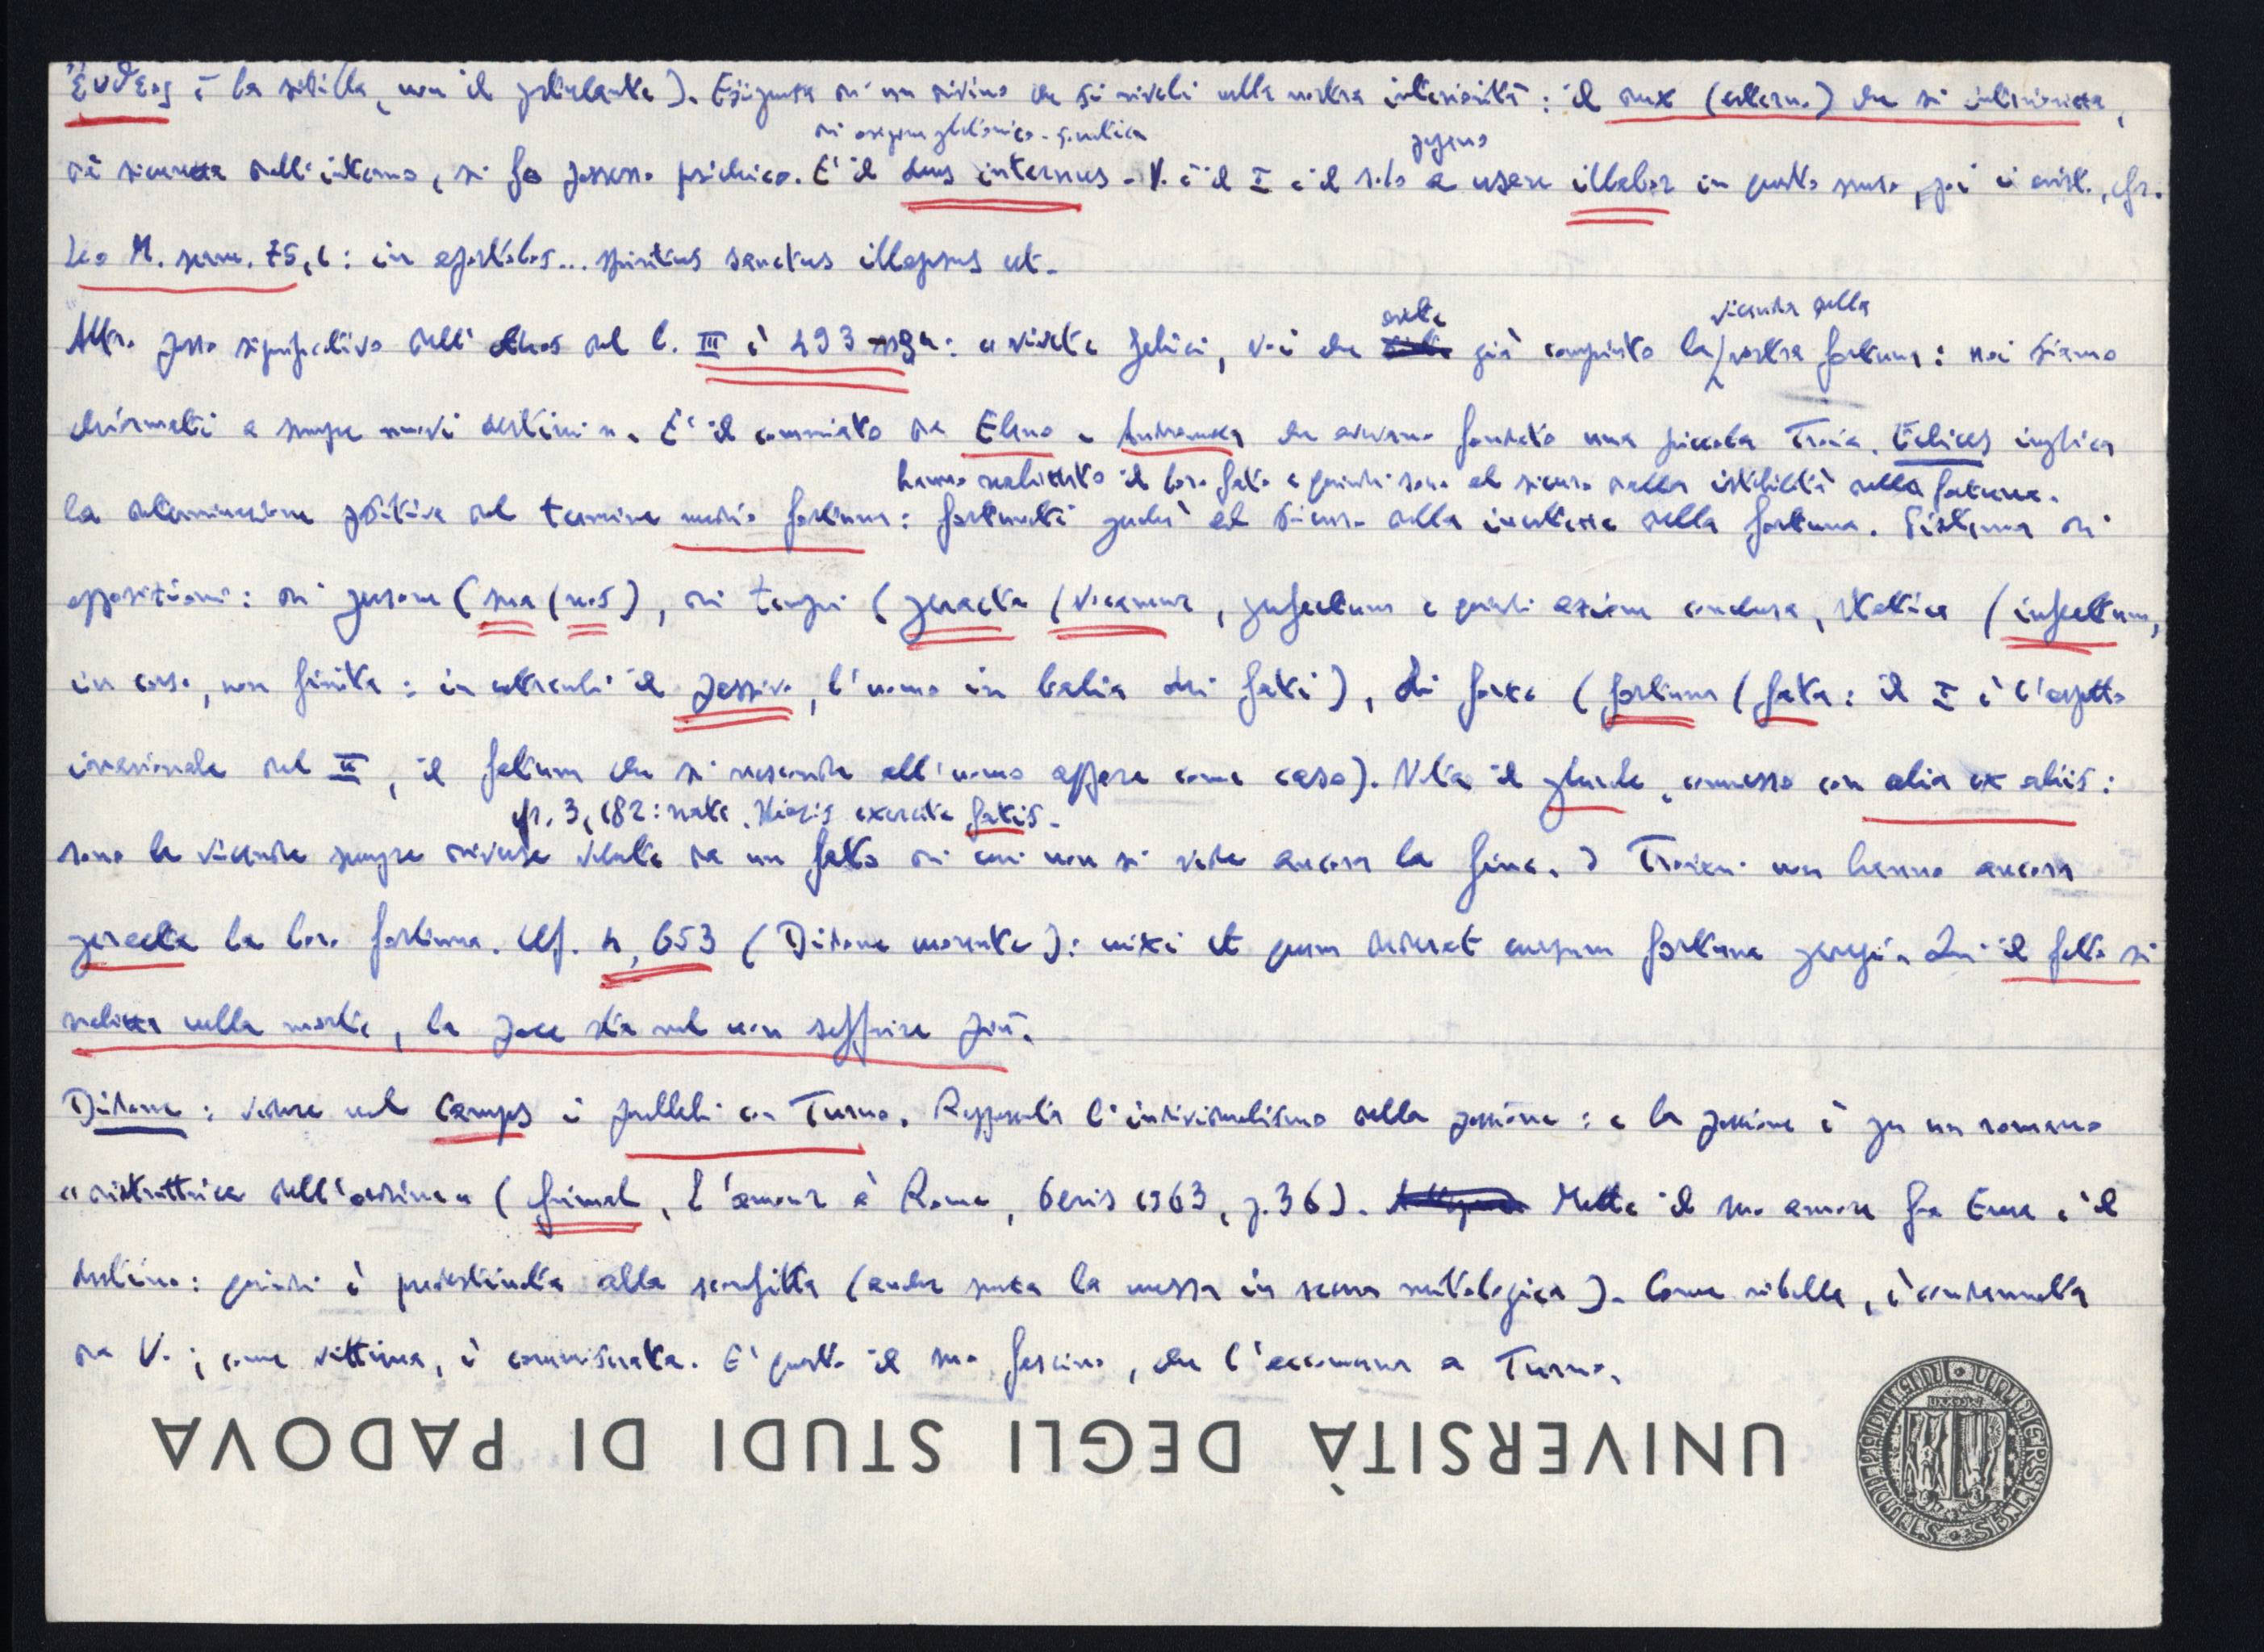 ἔνθεος è la sibilla, non il postulante). Esigenza di un divino che si riveli nella nostra interiorità: il nux (altern.) che si interiorizza,
di origine platonico-stoica pagano
dà sicurezza dall'interno, si fa possesso psichico. E' il deus internus. V. è il I e il solo a usare illabor in questo senso, poi i crist., cfr.
Leo M. serm. 75, 1: in apostolos... spiritus sanctus illapsus est.
avete vicenda della
Altro passo significativo dell'ethos del l. III è 493-494: «vivete felici, voi che già compiuto la vostra fortuna: noi siamo
chiamati a sempre nuovi destini». E' il commiato da Eleno e Andromaca che avevano fondato una piccola Troia. Felices implica
hanno realizzato il loro fato e quindi sono al sicuro dalla instabilità della fortuna.
la determinazione positiva del termine medio fortuna: fortunati perché al sicuro dalla incertezza della fortuna. Sistema di
opposizioni: di persone (sua/nos), di tempi (peracta/vocamur, perfectum e quindi azione conclusa, statica / infectum,
in corso, non finita: in entrambi il passivo, l'uomo in balia dei fati), di forze (fortuna/fata: il I è l'aspetto
irrazionale del II, il fatum che si nasconde all'uomo appare come caso). Nota il plurale, connesso con alia ex aliis:
cfr. 3, 182: nate, Iliacis exercite fatis.
sono le vicende sempre diverse volute da un fato di cui non si vede ancora la fine. I Troiani non hanno ancora
peracta la loro fortuna. Cfr. 4, 653 (Didone morente): vixi et quem dederat cursum fortuna peregi. Qui il fato si
realizza nella morte, la pace sta nel non soffrire più.
Didone: vedere nel Camps i paralleli con Turno. Rappresenta l'individualismo della passione: e la passione è per un romano
«distruttrice dell'ordine» (Grimal, L'amour à Rome, Paris 1963, p. 36). Mette il suo amore fra Enea e il
destino: quindi è predestinata alla sconfitta (anche senza la messa in scena mitologica). Come ribelle, è condannata
da V.; come vittima, è commiserata. E' questo il suo fascino, che l'accomuna a Turno.
UNIVERSITÀ DEGLI STUDI DI PADOVA